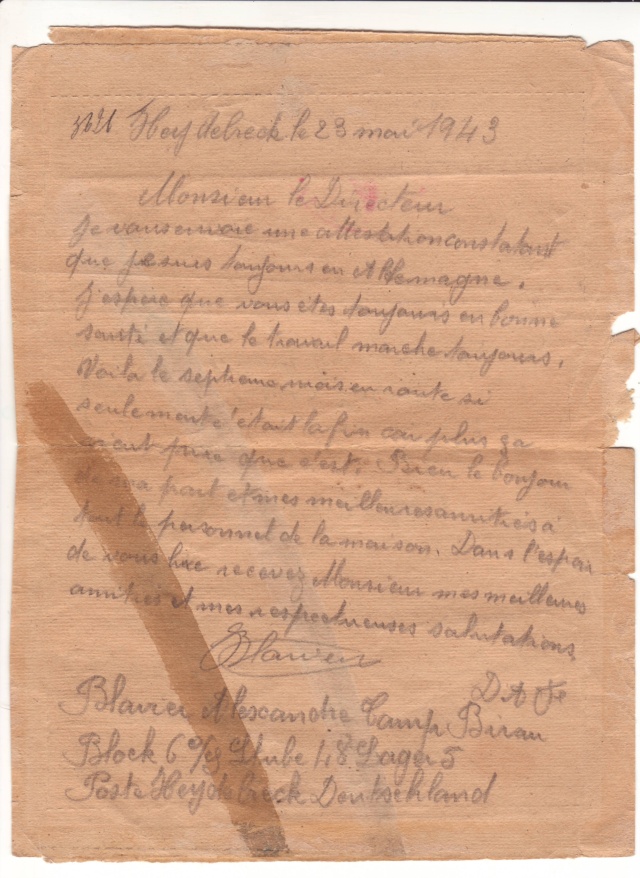 3621 Heydebreck le 23 mai 1943
Monsieur le Directeur
Je vous envoie une attestation constatant
que je suis toujours en Allemagne.
J'espère que vous êtes toujours en bonne
santé et que le travail marche toujours.
Voila le septieme mois en route si
seulement c'était la fin car plus ça
vient pire que c'est. Bien le bonjour
de ma part et mes meilleures amitiés à
tout le personnel de la maison. Dans l'espoir
de vous lire recevez Monsieur mes meilleures
amitiés et mes respectueuses salutations
Blavier
Blavier Alexandre Camp Birau
Block 6 Stube 18 Lager 5
Poste Heydebreck Deutschland